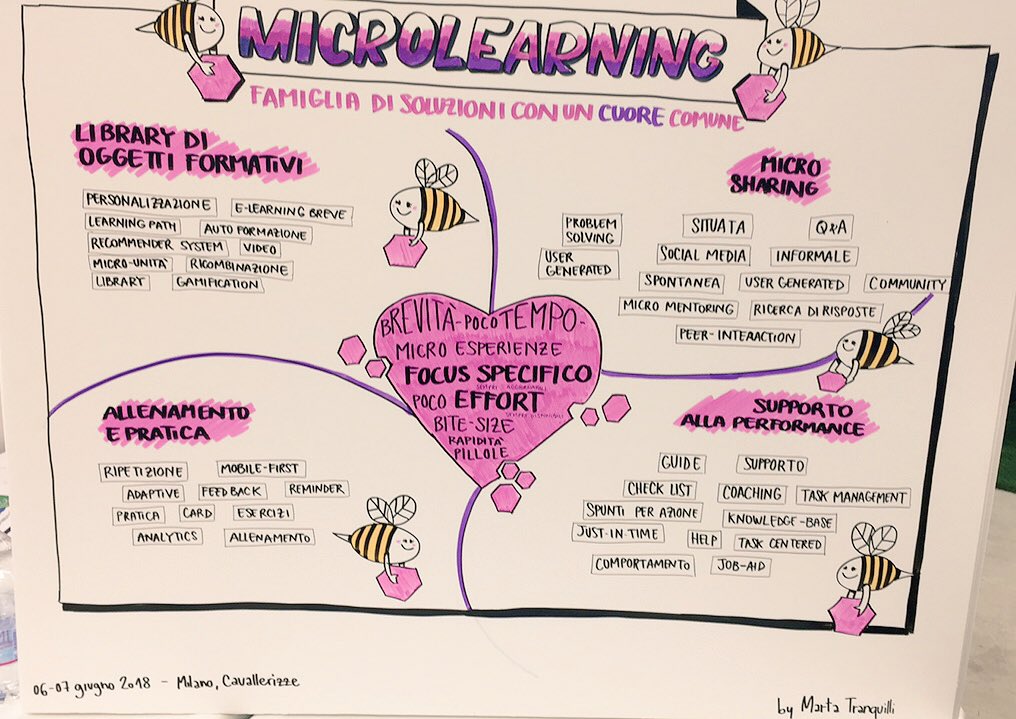 MICROLEARNING
FAMIGLIA DI SOLUZIONI CON UN CUORE COMUNE
LIBRARY DI
OGGETTI FORMATIVI
PERSONALIZZAZIONE
E-LEARNING BREVE
LEARNING PATH
AUTO FORMAZIONE
RECOMMENDER SYSTEM
VIDEO
MICRO-UNITÀ
RICOMBINAZIONE
LIBRARY
GAMIFICATION
MICRO
SHARING
PROBLEM
SOLVING
SITUATA
Q&A
USER
GENERATED
SOCIAL MEDIA
INFORMALE
SPONTANEA
USER GENERATED
COMMUNITY
MICRO MENTORING
RICERCA DI RISPOSTE
PEER-INTERACTION
BREVITÀ-POCO TEMPO-
MICRO ESPERIENZE
FOCUS SPECIFICO
SEMPRE AGGIORNABILI
POCO EFFORT
SEMPRE DISPONIBILI
BITE-SIZE
RAPIDITÀ
PILLOLE
ALLENAMENTO
E PRATICA
RIPETIZIONE
MOBILE-FIRST
ADAPTIVE
FEEDBACK
REMINDER
PRATICA
CARD
ESERCIZI
ANALYTICS
ALLENAMENTO
SUPPORTO
ALLA PERFORMANCE
GUIDE
SUPPORTO
CHECK LIST
COACHING
TASK MANAGEMENT
SPUNTI PER AZIONE
KNOWLEDGE-BASE
JUST-IN-TIME
HELP
TASK CENTERED
COMPORTAMENTO
JOB-AID
06-07 giugno 2018 - Milano, Cavallerizze
by Marta Tranquilli